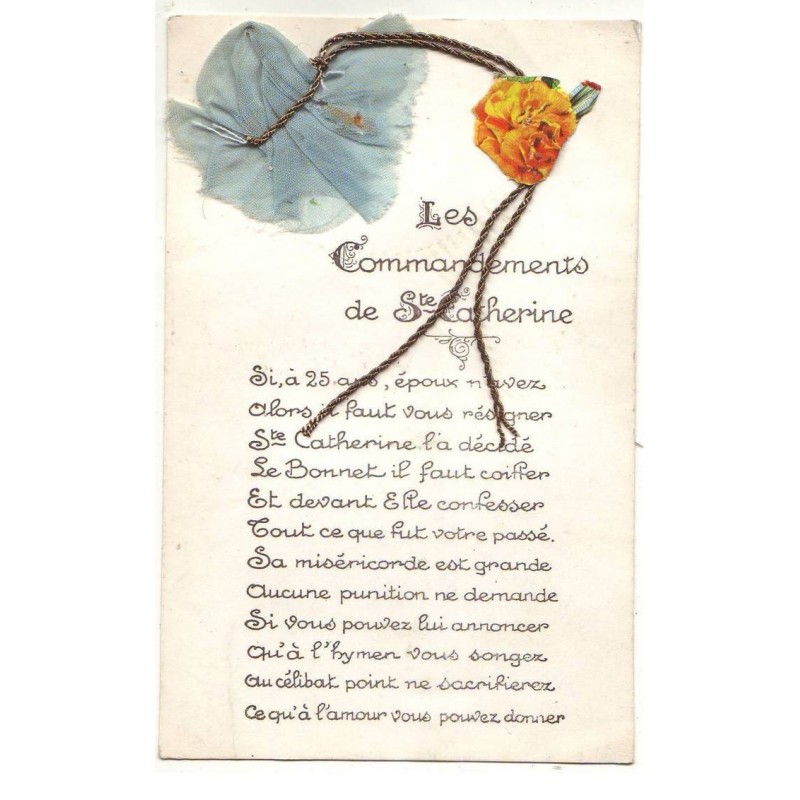 Les
Commandements
de Ste Catherine
Si, à 25 ans, époux n'avez
Alors il faut vous résigner
Ste Catherine l'a décidé
Le Bonnet il faut coiffer
Et devant Elle confesser
Tout ce que fut votre passé.
Sa miséricorde est grande
Aucune punition ne demande
Si vous pouvez lui annoncer
Qu'à l'hymen vous songez
Au célibat point ne sacrifierez
Ce qu'à l'amour vous pouvez donner